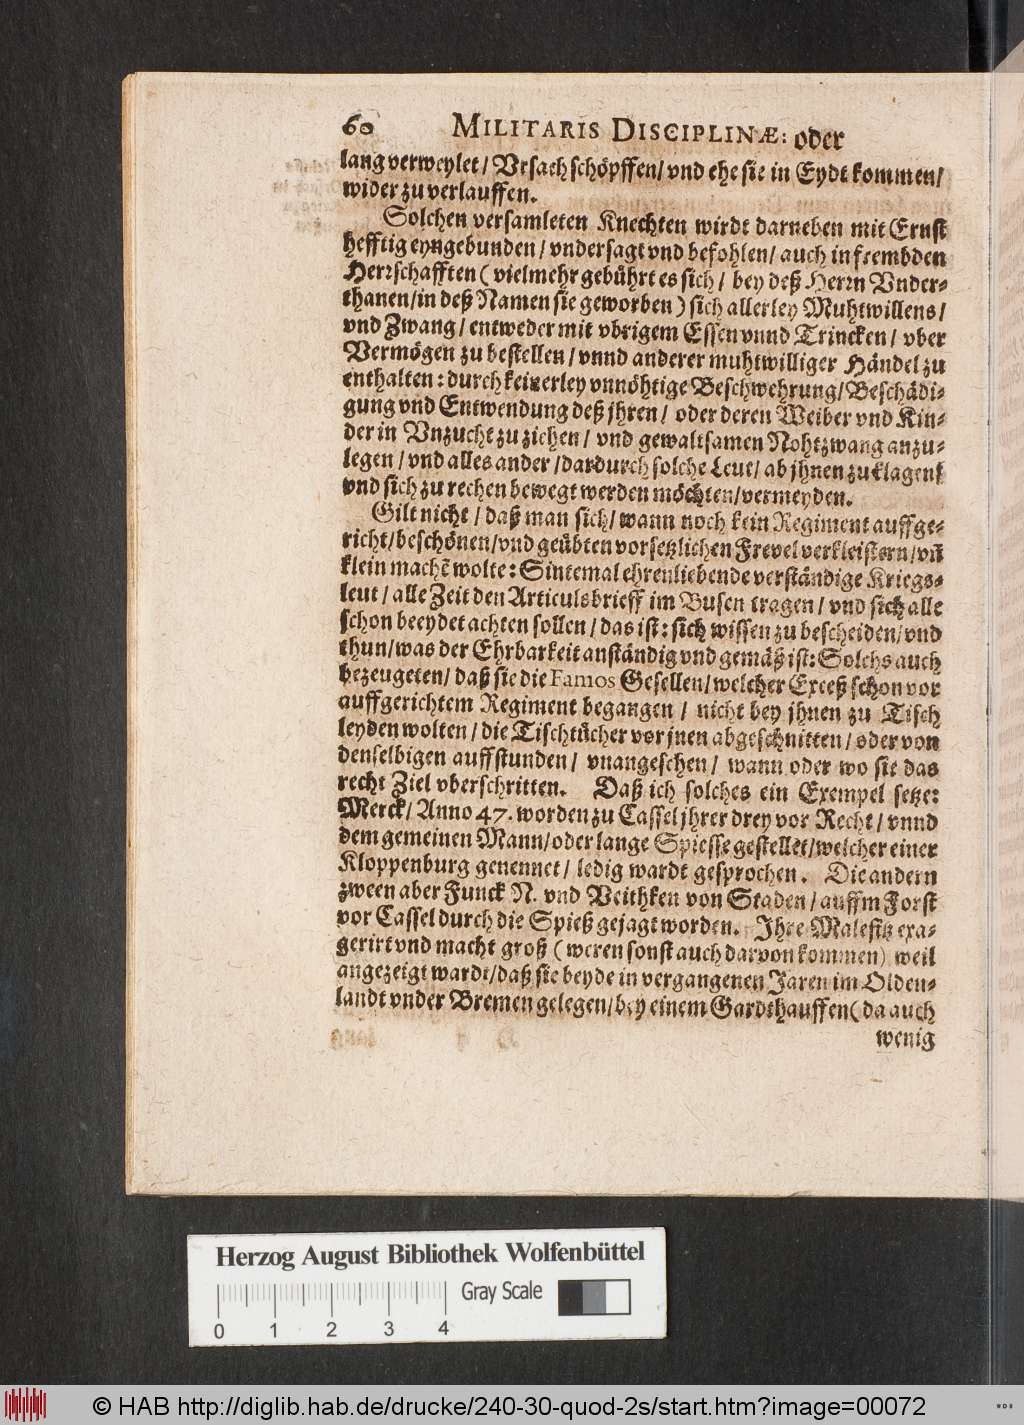 60 MILITARIS DISCIPLINÆ: oder
lang verweylet / Vrsach schöpffen / vnd ehe sie in Eydt kommen /
wider zu verlauffen.
Solchen versamleten Knechten wirdt darneben mit Ernst
hefftig eyngebunden / vndersagt vnd befohlen / auch in frembden
Herrschafften ( vielmehr gebührt es sich / bey deß Herrn Vnder-
thanen / in deß Namen sie geworben ) sich allerley Muhtwillens /
vnd Zwang / entweder mit vbrigem Essen vnnd Trincken / vber
Vermögen zu bestellen / vnnd anderer muhtwilliger Händel zu
enthalten: durch keinerley vnnöhtige Beschwehrung / Beschädi-
gung vnd Entwendung deß jhren / oder deren Weiber vnd Kin-
der in Vnzucht zu ziehen / vnd gewaltsamen Nohtzwang anzu-
legen / vnd alles ander / dardurch solche Leut / ab jhnen zu klagen /
vnd sich zu rechen bewegt werden möchten / vermeyden.
Gilt nicht / daß man sich / wann noch kein Regiment auffge-
richt / beschönen / vnd geübten vorsetzlichen Frevel verkleistern / vñ
klein machẽ wolte: Sintemal ehrenliebende verständige Kriegs-
leut / alle Zeit den Articulsbrieff im Busen tragen / vnd sich alle
schon beeydet achten sollen / das ist: sich wissen zu bescheiden / vnd
thun / was der Ehrbarkeit anständig vnd gemäß ist: Solchs auch
bezeugeten / daß sie die Famos Gesellen / welcher Exceß schon vor
auffgerichtem Regiment begangen / nicht bey jhnen zu Tisch
leyden wolten / die Tischtücher vor jnen abgeschnitten / oder von
denselbigen auffstunden / vnangesehen / wann oder wo sie das
recht Ziel vberschritten. Daß ich solches ein Exempel setze:
Merck / Anno 47. worden zu Cassel jhrer drey vor Recht / vnnd
dem gemeinen Mann / oder lange Spiesse gestellet / welcher einer
Kloppenburg genennet / ledig wardt gesprochen. Die andern
zween aber Funck N. vnd Veithken von Staden / auffm Forst
vor Cassel durch die Spieß gejagt worden. Ihre Malefitz exa-
gerirt vnd macht groß ( weren sonst auch darvon kommen) weil
angezeigt wardt / daß sie beyde in vergangenen Jaren im Olden-
landt vnder Bremen gelegen / bey einem Gardthauffen ( da auch
wenig
Herzog August Bibliothek Wolfenbüttel
Gray Scale
0 1 2 3 4
© HAB http://diglib.hab.de/drucke/240-30-quod-2s/start.htm?image=00072